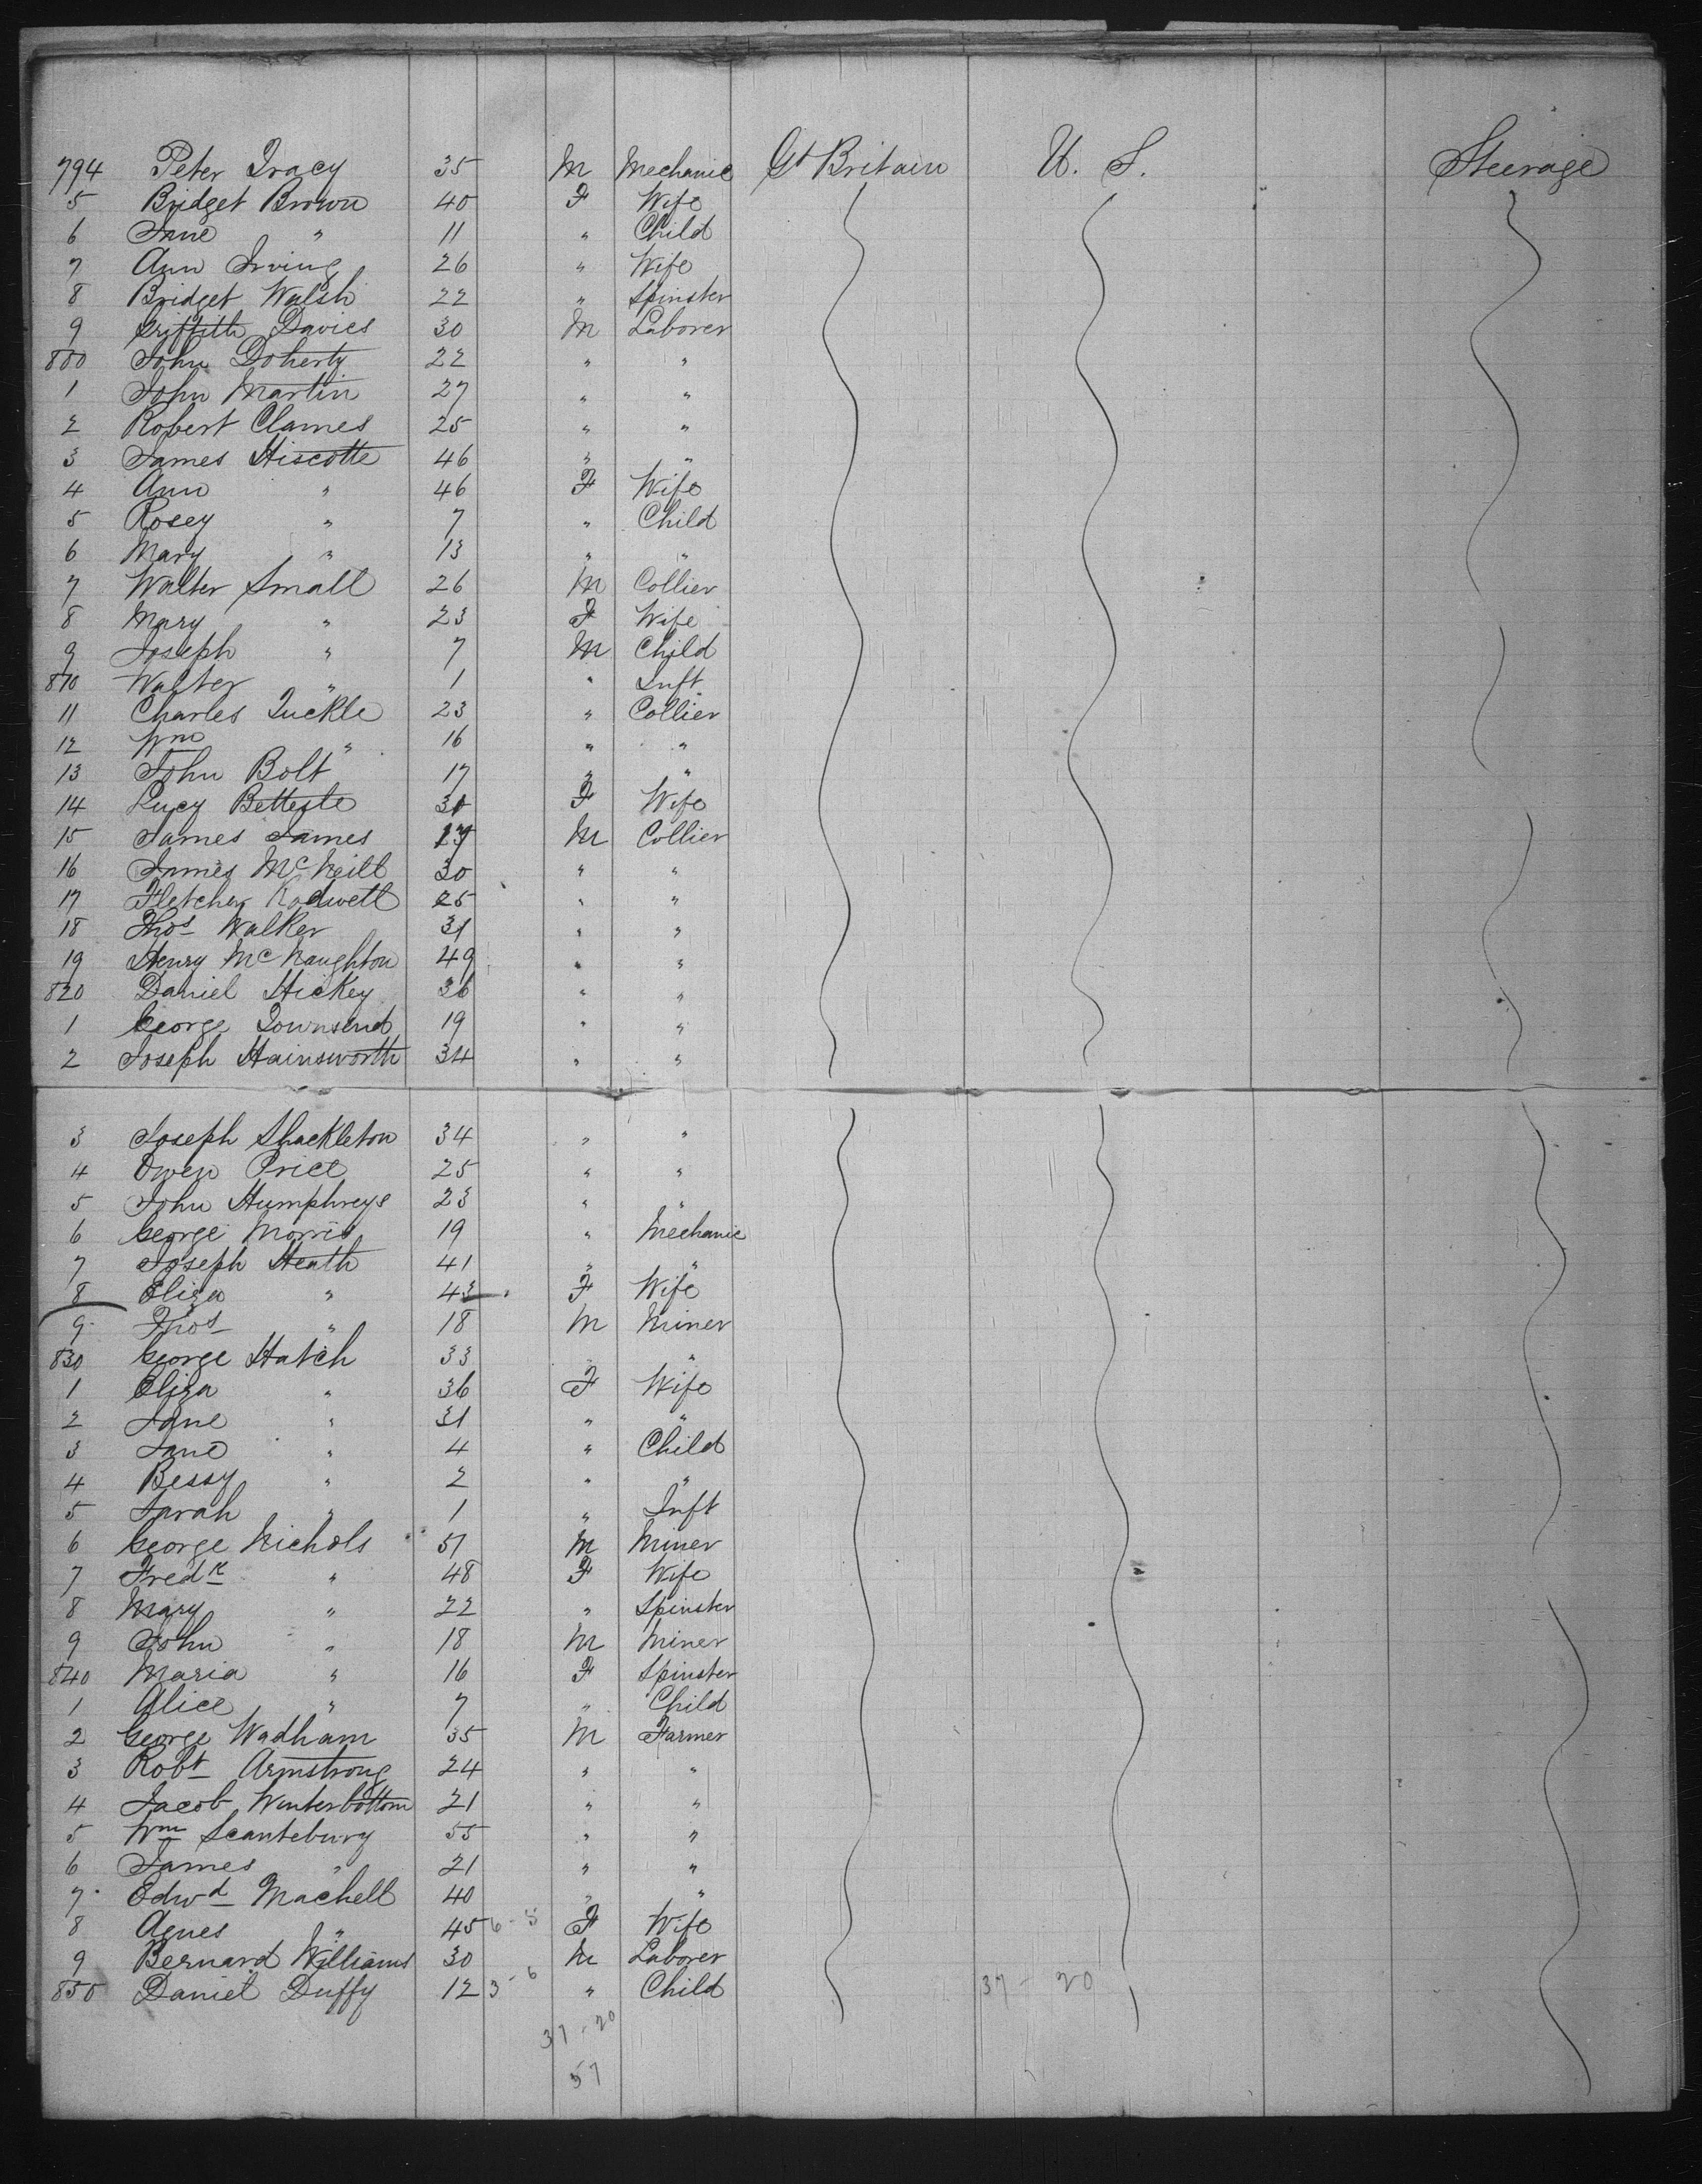 794 Peter Tracy 35 M Mechanic Gt Britain U. S. Steerage
5 Bridget Brown 40 F Wife
6 Jane " 11 " Child
7 Ann Irving 26 " Wife
8 Bridget Walsh 22 " Spinster
9 Griffith Davies 30 M Laborer
800 John Doherty 22 " "
1 John Martin 27 " "
2 Robert Clames 25 " "
3 James Hiscotte 46 " "
4 Ann " 46 F Wife
5 Rosey " 7 " Child
6 Mary " 13 " "
7 Walter Small 26 M Collier
8 Mary " 23 F Wife
9 Joseph " 7 M Child
810 Walter " 1 " Inft
11 Charles Tuckle 23 " Collier
12 Wm " 16 " "
13 John Bolt 17 " "
14 Lucy 30 F Wife
15 James James M Collier
16 James McNeill 30 " "
17 Fletcher Rodwell 25 " "
18 Thos Walker 31 " "
19 Henry McNaughton 49 " "
820 Daniel Hickey 36 " "
1 George Townsend 19 " "
2 Joseph Hainsworth 34 " "
3 Joseph Shackleton 34 " "
4 Owen Price 25 " "
5 John Humphreys 23 " "
6 George Morris 19 " Mechanic
7 Joseph Heath 41 " "
8 Eliza " 43 F Wife
9 Thos " 18 M Miner
830 George Hatch 33 " "
1 Eliza " 36 F Wife
2 Jane " 31 " "
3 Jane " 4 " Child
4 Bessy " 2 " "
5 Sarah " 1 " Inft
6 George Nichols 51 M Miner
7 Fredk " 48 F Wife
8 Mary " 22 " Spinster
9 John " 18 M Miner
840 Maria " 16 F Spinster
1 Alice " 7 " Child
2 George Wadham 35 M Farmer
3 Robt Armstrong 24 " "
4 Jacob Winterbottom 21 " "
5 Wm Scantebury 55 " "
6 James " 21 " "
7 Edwd Machell 40 " "
8 Agnes " 45 6-5 F Wife
9 Bernard Williams 30 M Laborer
850 Daniel Duffy 12 3-6 " Child 37-20
37-20
57